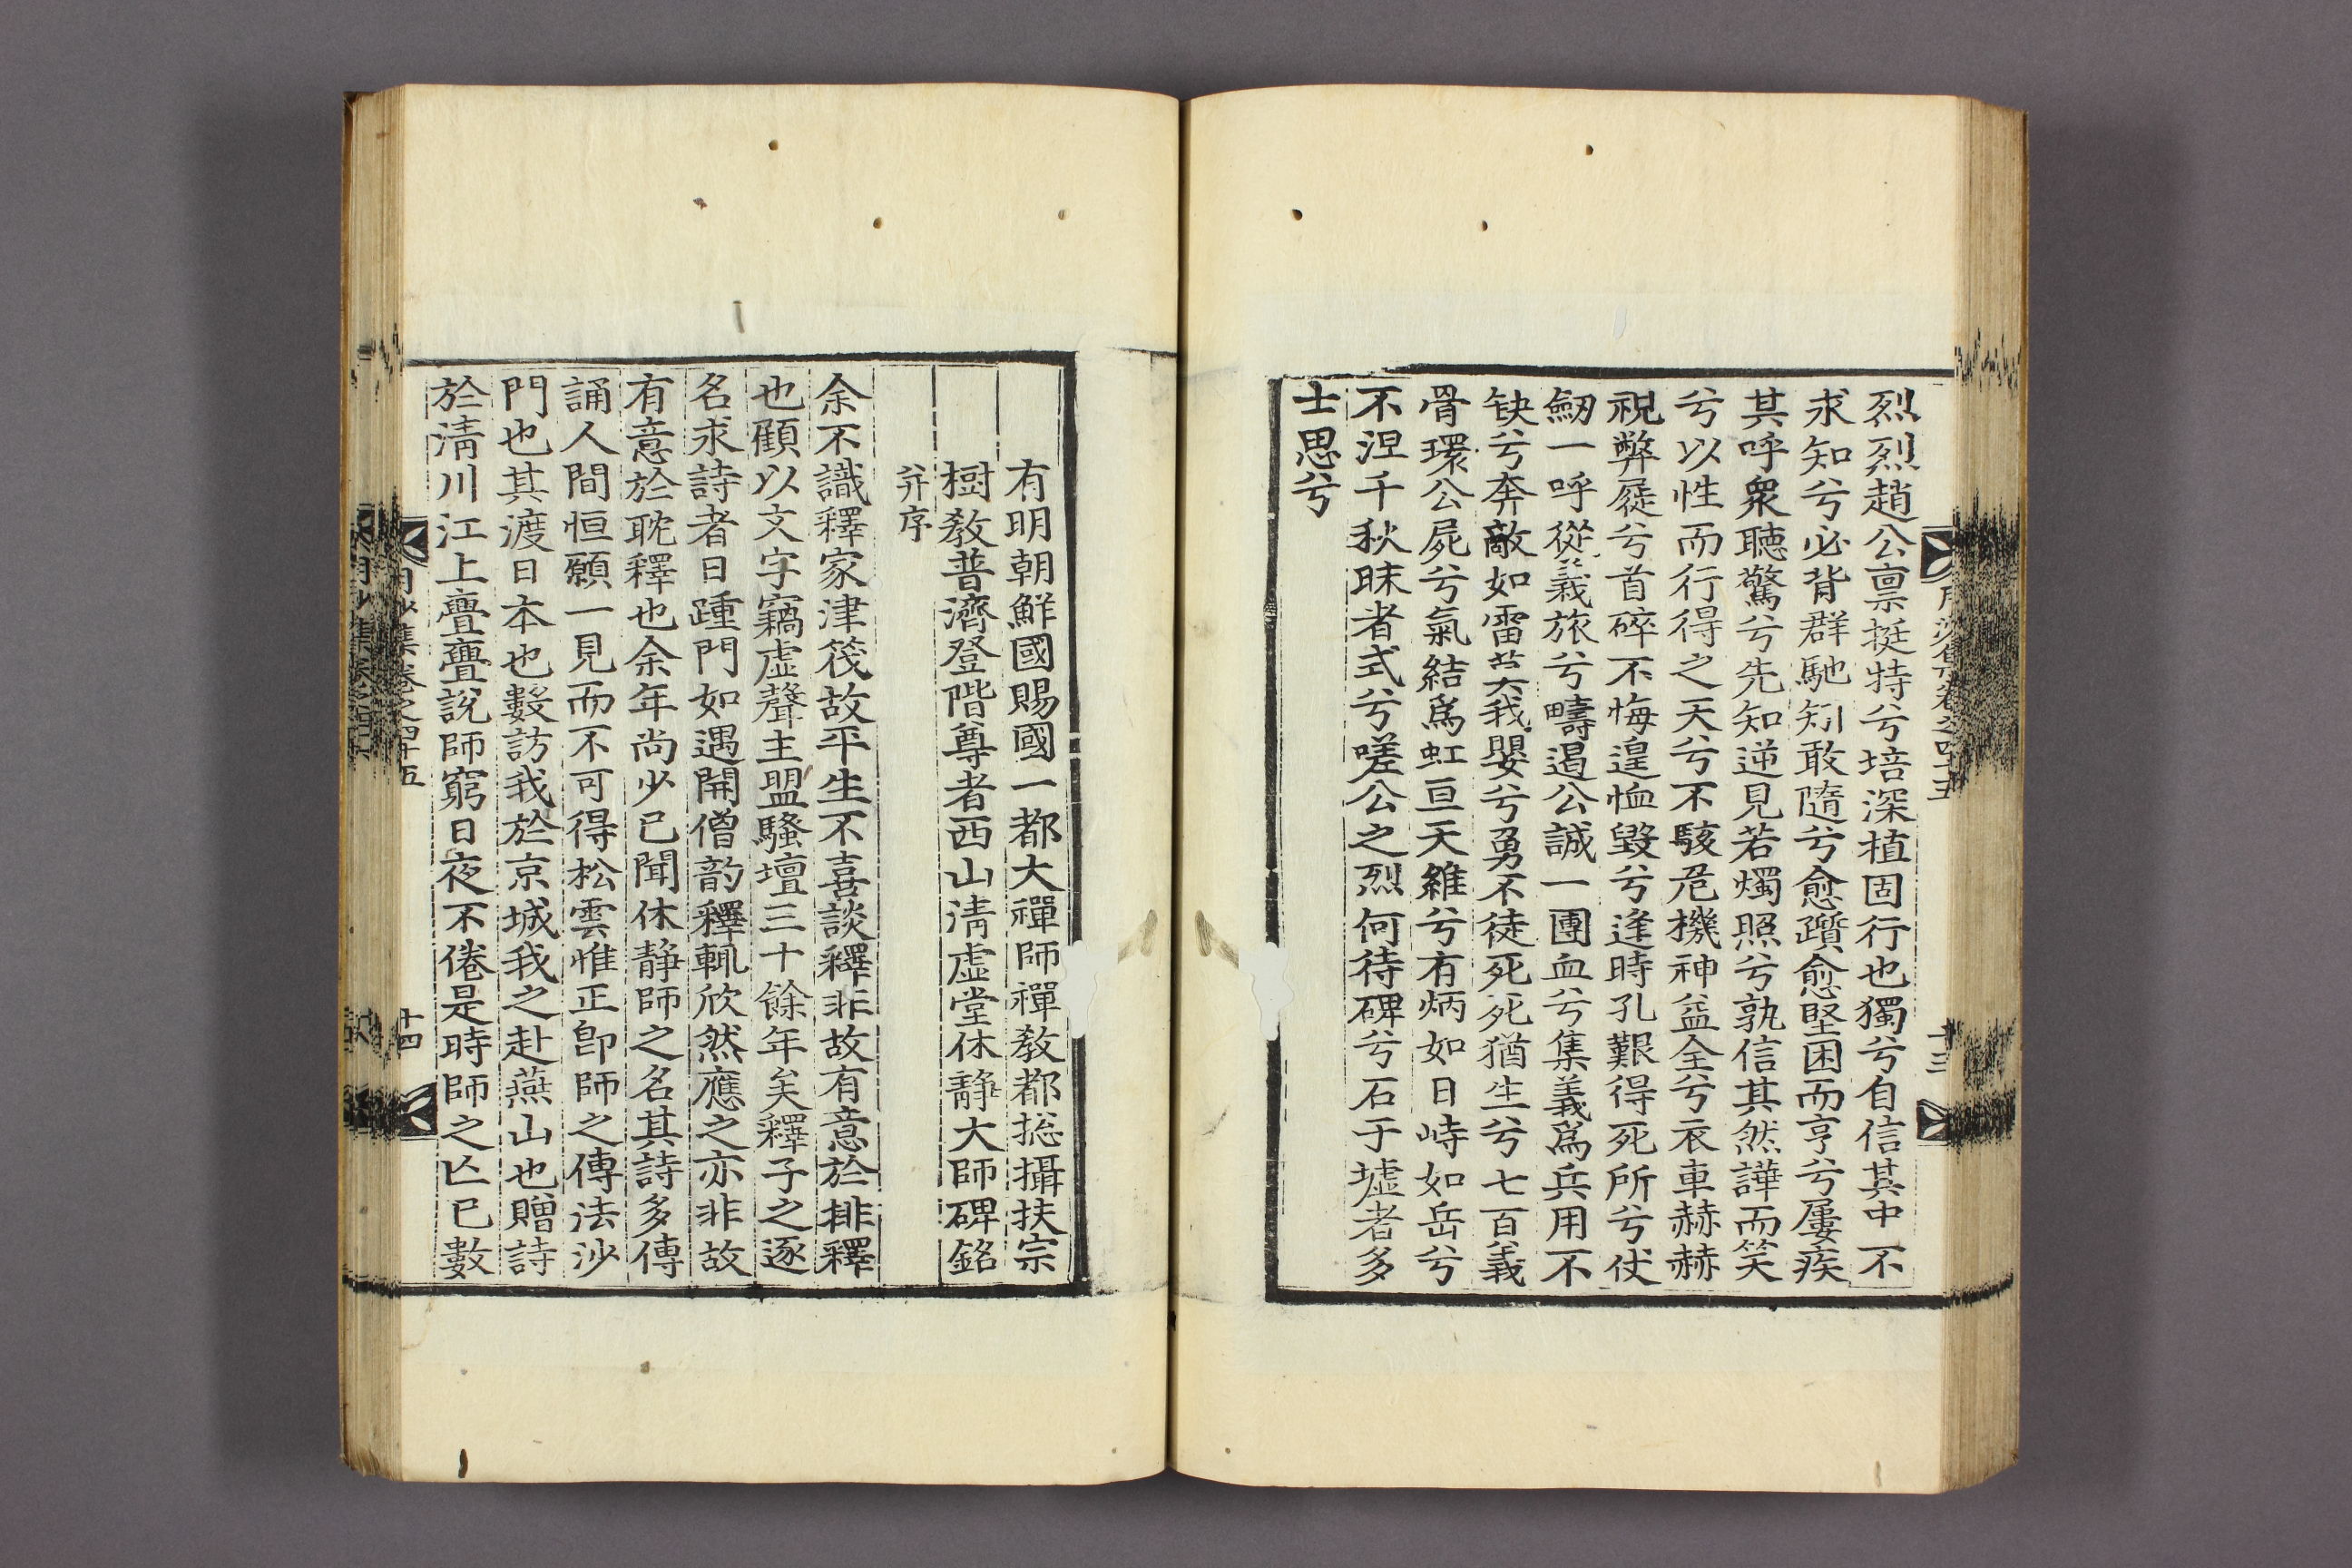 烈烈趙公禀挺特兮培深植固行也獨兮自信其中不
求知兮必背群馳矧敢隨兮愈躓愈堅困而亨兮屢疾
其呼衆聽驚兮先知逆見若燭照兮孰信其然譁而笑
兮以性而行得之天兮不駭危機神益全兮衣車赫赫
視弊屣兮首碎不悔遑恤毀兮逢時孔艱得死所兮仗
劒一呼從義旅兮疇遏公誠一團血兮集義爲兵用不
缺兮奔敵如雷莫我嬰兮勇不徒死死猶生兮七百義
骨環公屍兮氣結爲虹亘天維兮有炳如日峙如岳兮
不涅千秋昧者式兮嗟公之烈何待碑兮石于墟者多
士思兮
月沙集卷之四十五
十三
有明朝鮮國賜國一都大禪師禪敎都摠攝扶宗
樹敎普濟登階尊者西山淸虛堂休靜大師碑銘
幷序
余不識釋家津筏故平生不喜談釋非故有意於排釋
也顧以文字竊虛聲主盟騷壇三十餘年矣釋子之逐
名求詩者日踵門如遇開僧韵釋輒欣然應之亦非故
有意於耽釋也余年尙少已聞休靜師之名其詩多傳
誦人間恒願一見而不可得松雲惟正卽師之傳法沙
門也其渡日本也數訪我於京城我之赴燕山也贈詩
於淸川江上亹亹說師窮日夜不倦是時師之亡已數
月沙集卷之四十五
十四